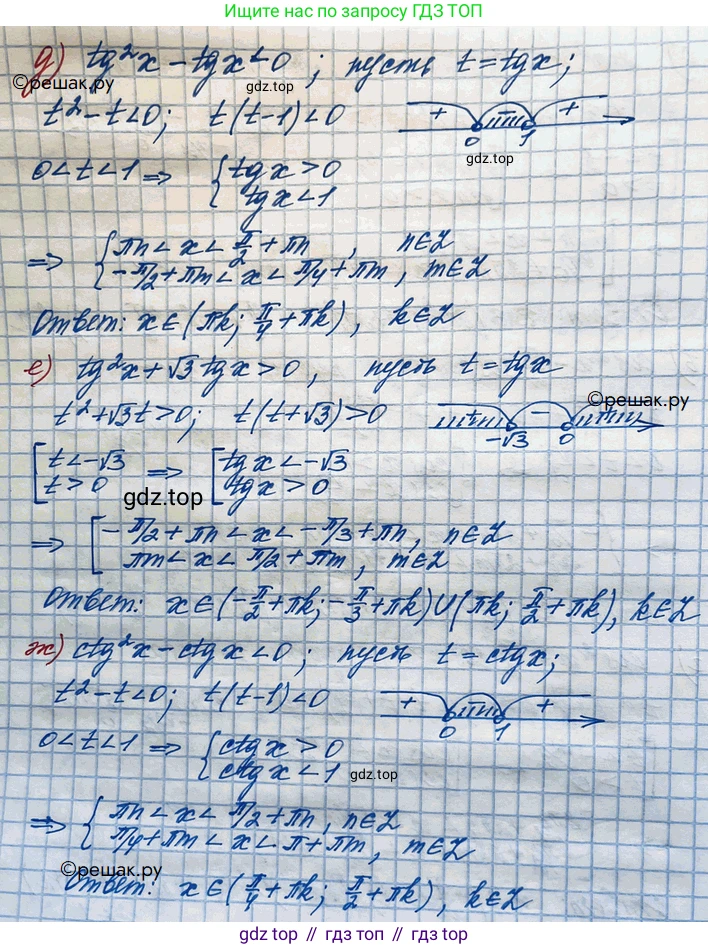 Ищите нас по запросу ГДЗ ТОП
д) tg²x − tgx < 0 ; пусть t = tgx;
©решак.ру
gdz.top
t² − t < 0; t(t−1) < 0
+ − +
0 1
gdz.top
0 < t < 1 ⇒ { tgx > 0
tgx < 1
⇒ { πn < x < π/2 + πn , n∈Z
−π/2 + πm < x < π/4 + πm , m∈Z
Ответ: x∈(πk; π/4 + πk) , k∈Z
е) tg²x + √3 tgx > 0 , пусть t = tgx
©решак.ру
t² + √3t > 0; t(t+√3) > 0
+ − +
−√3 0
[ t < −√3 ⇒ [ tgx < −√3
t > 0 tgx > 0
gdz.top
⇒ [ −π/2 + πn < x < −π/3 + πn, n∈Z
πm < x < π/2 + πm , m∈Z
Ответ: x∈(−π/2 + πk; −π/3 + πk)∪(πk; π/2 + πk), k∈Z
ж) ctg²x − ctgx < 0 ; пусть t = ctgx;
t² − t < 0; t(t−1) < 0
+ − +
0 1
0 < t < 1 ⇒ { ctgx > 0
ctgx < 1
gdz.top
⇒ { πn < x < π/2 + πn, n∈Z
π/4 + πm < x < π + πm , m∈Z
©решак.ру
Ответ: x∈(π/4 + πk; π/2 + πk), k∈Z
gdz.top // gdz.top // gdz.top // gdz.top